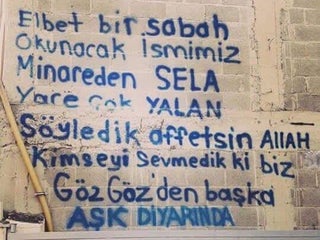 Elbet bir sabah
Okunacak İsmimiz
Minareden SELA
Yare çok YALAN
Söyledik affetsin ALLAH
Kimseyi Sevmedik ki biz
Göz Göz'den başka
AŞK DİYARINDA